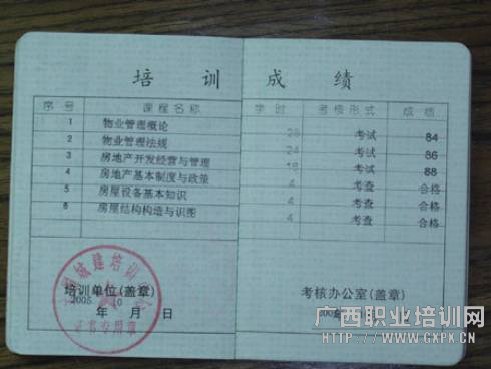 培训成绩
序号 课程名称 学时 考核形式 成绩
1 物业管理概论 28 考试 84
2 物业管理法规 24 考试 86
3 房地产开发经营与管理 18 考试 88
4 房地产基本制度与政策 4 考查 合格
5 房屋设备基本知识 4 考查 合格
6 房屋结构构造与识图 4 考查 合格
培训单位(盖章) 考核办公室(盖章)
2005 10
年 月 日
广西职业培训网
WWW.GXPK.CN